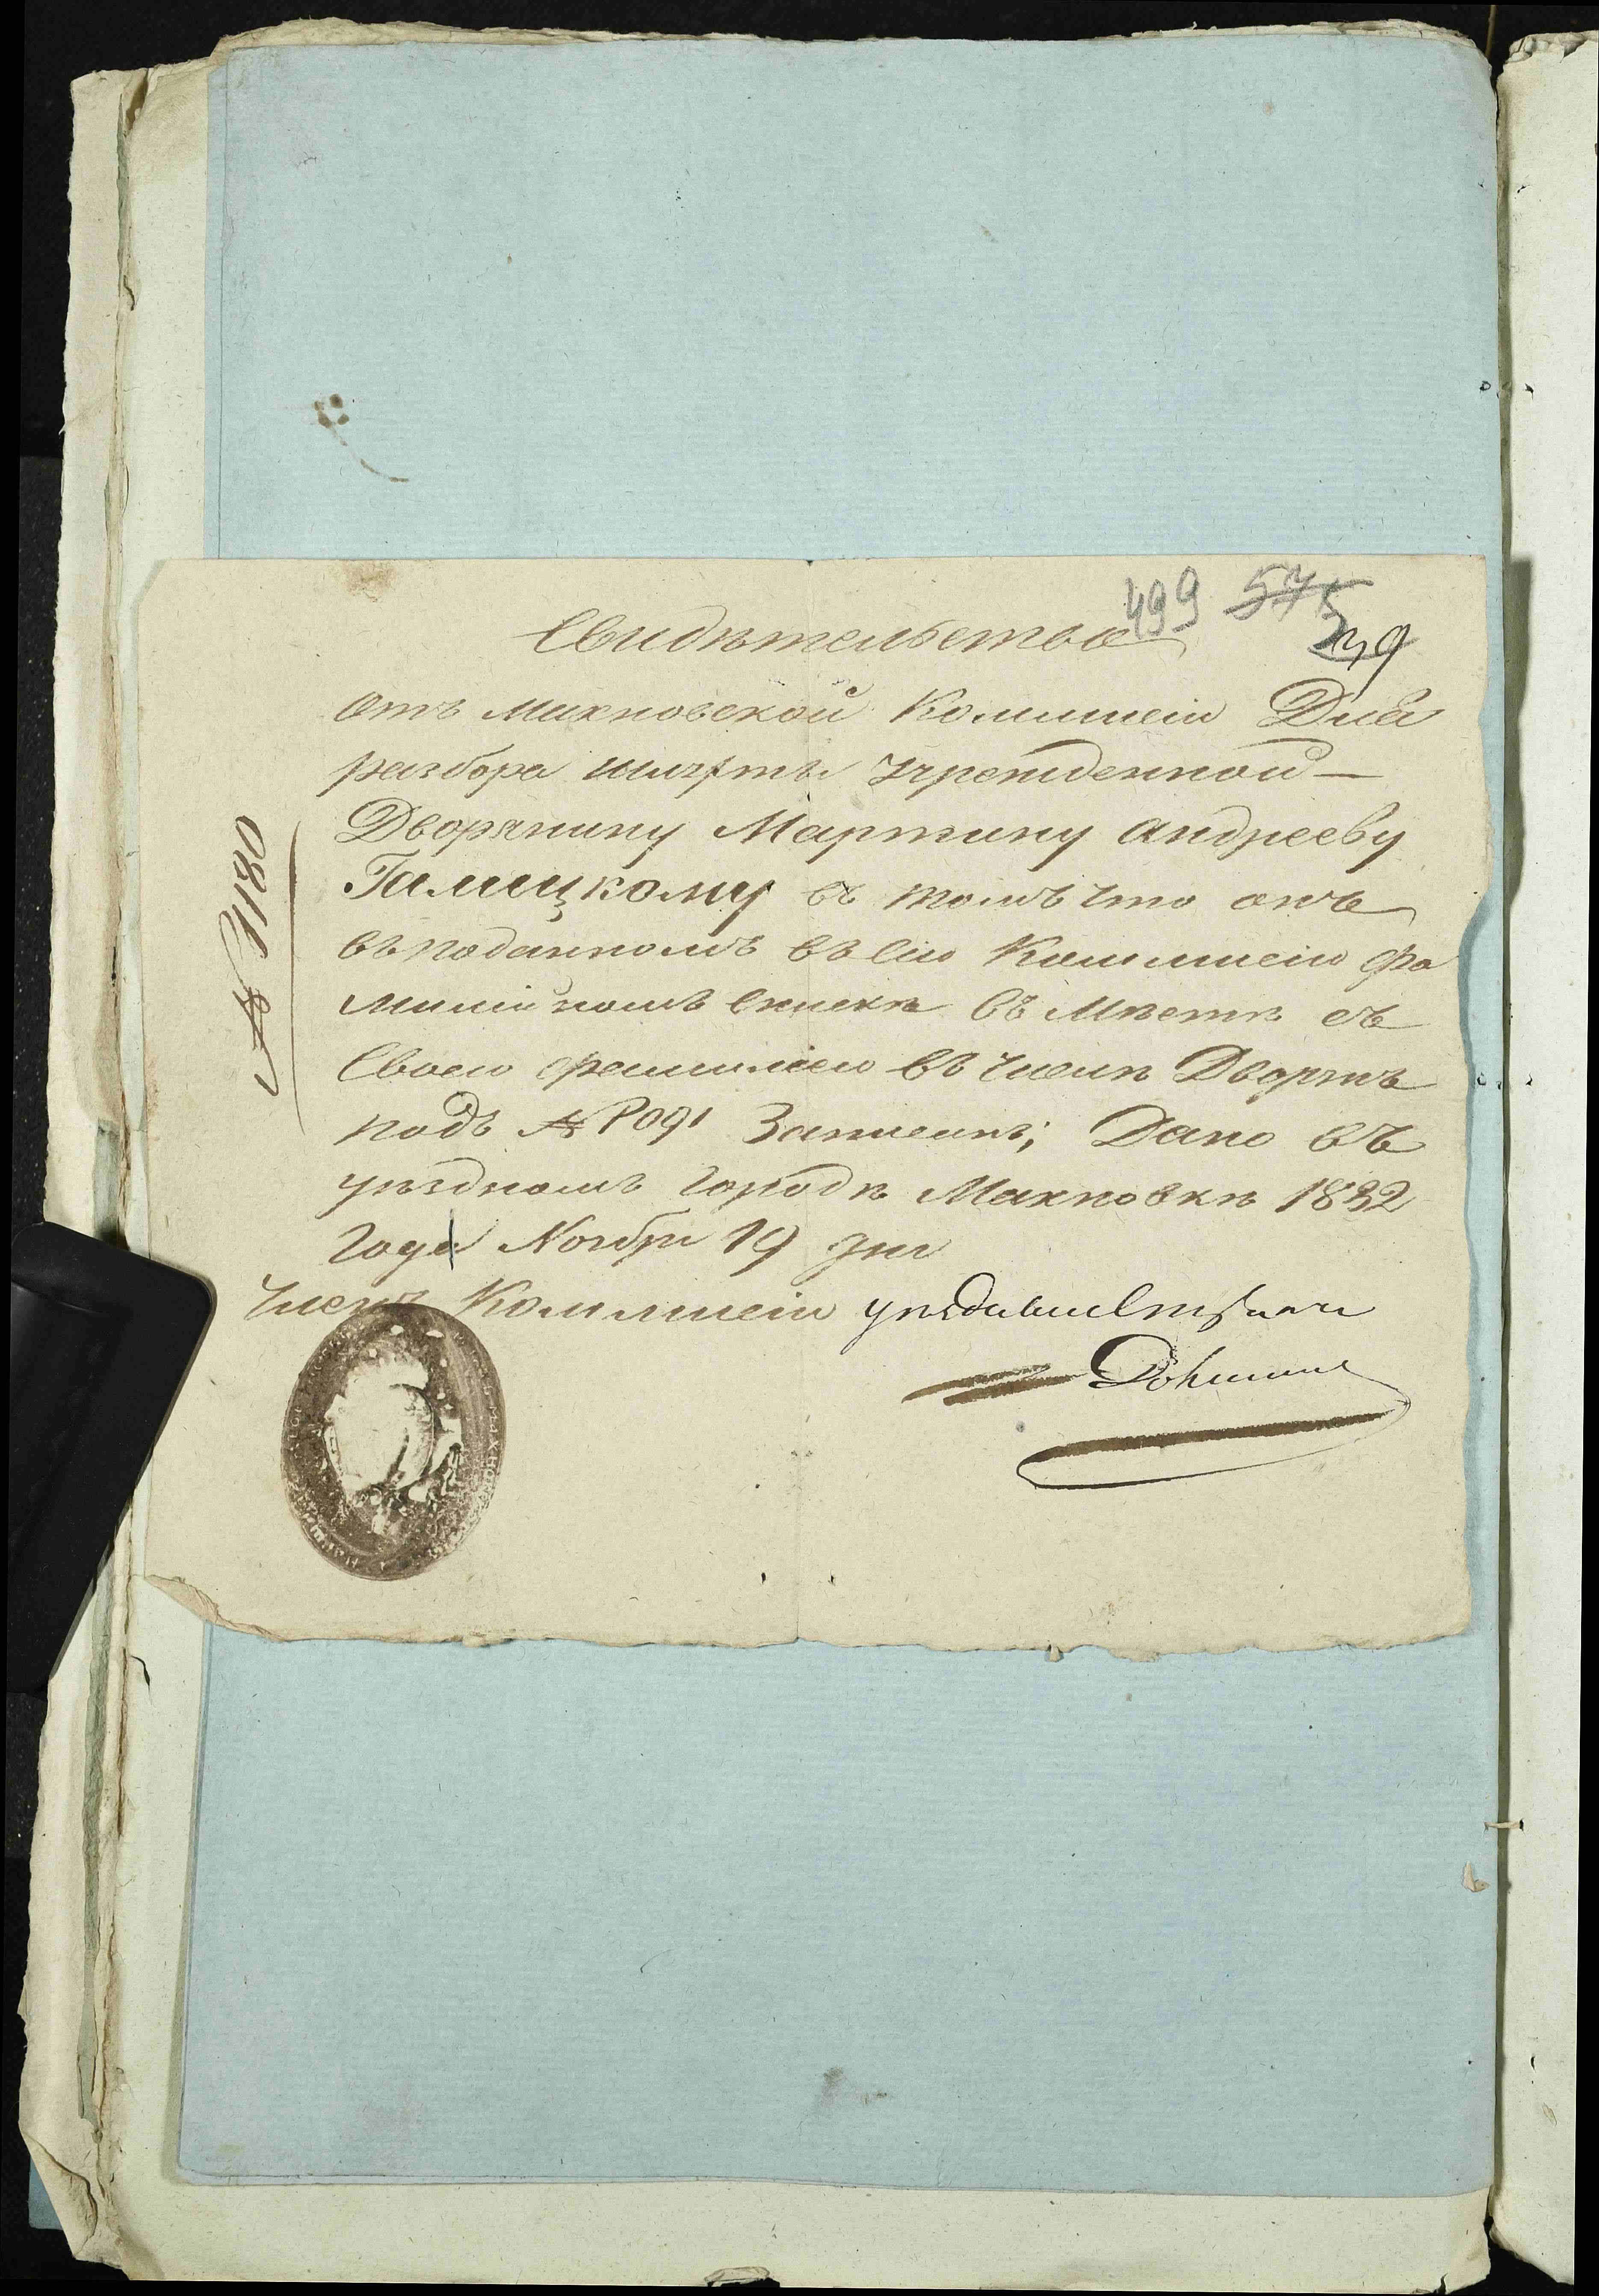 499 575
349
Свидѣтельство
отъ Махновской Коммисіи Для
разбора шляхты учрежденной —
Дворянину Мартину Андрееву
Галицкому въ томъ что онъ
въ поданномъ въ сію Коммисію фа
милійномъ спискѣ въ Мѣстѣ съ
Своею фамиліею въ числѣ Дворянъ
подъ № 1091 Записанъ; Дано въ
уѣздномъ городѣ Махновкѣ 1832
года Ноября 19 дня
№ 1180
Членъ Коммисіи уѣздный Стряпчій